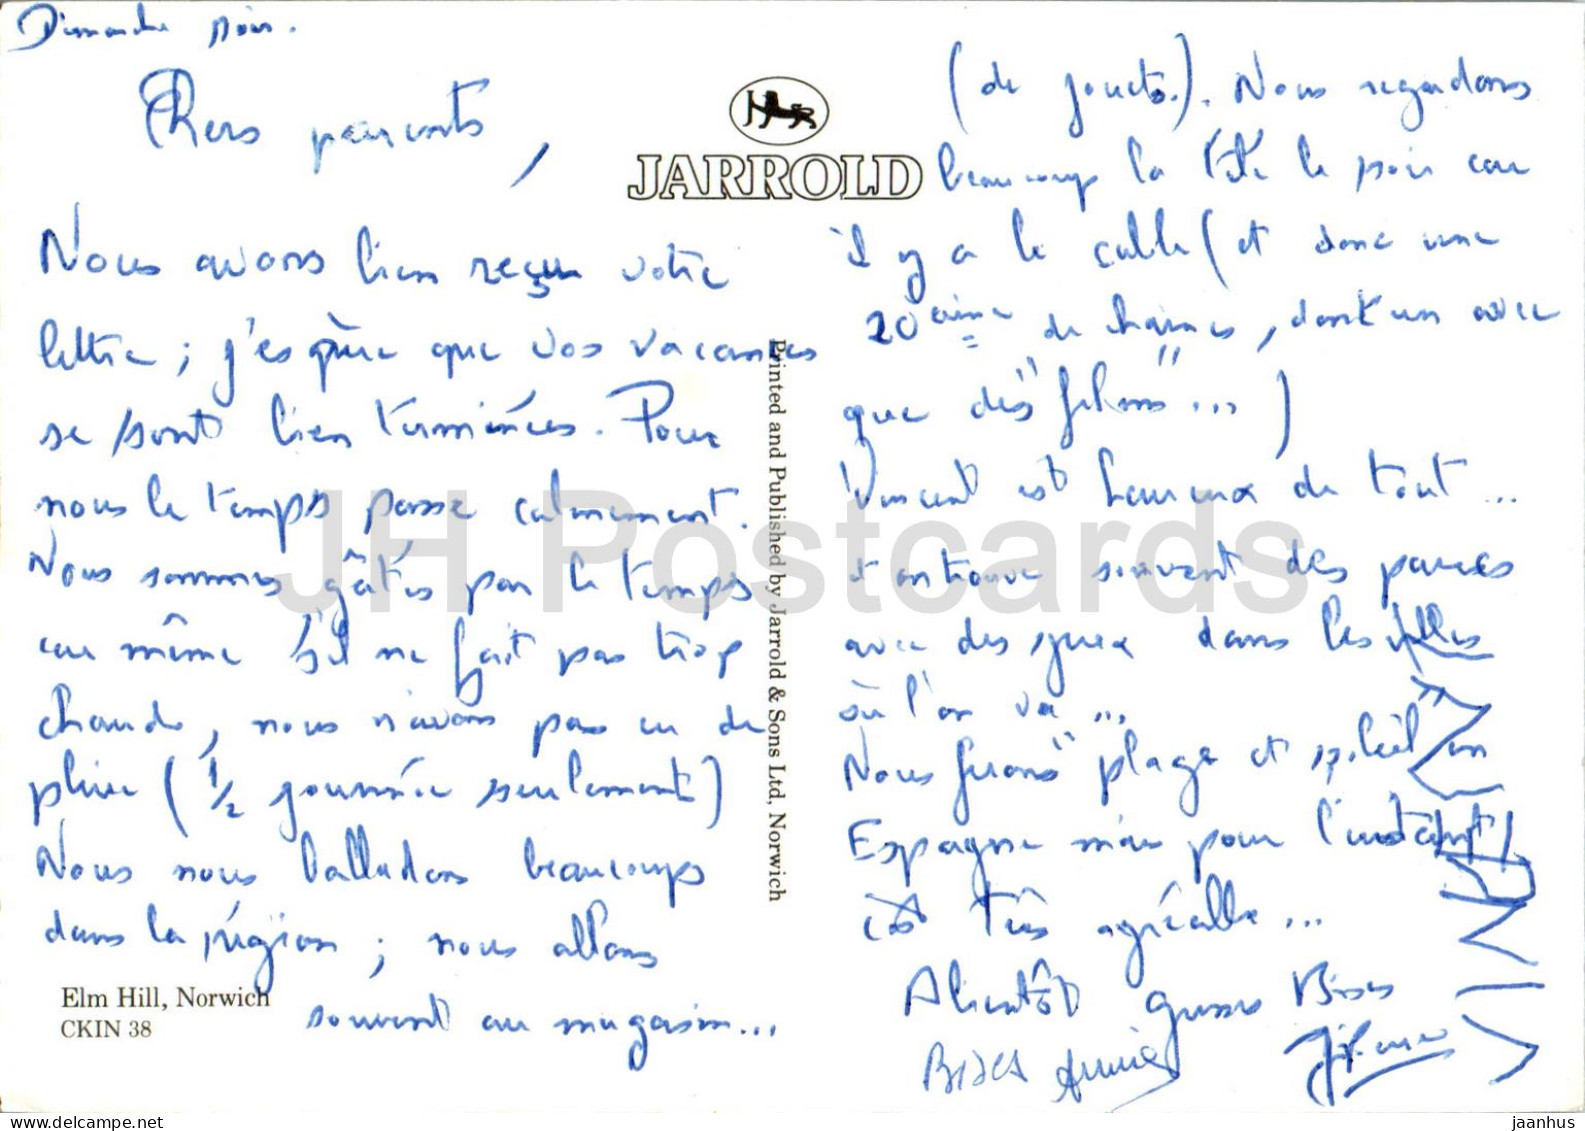 Dimanche soir.
Chers parents,
Nous avons bien reçu votre
lettre ; j'espère que vos vacances
se sont bien terminées. Pour
nous le temps passe calmement.
Nous sommes gâtés par le temps
car même s'il ne fait pas trop
chaud, nous n'avons pas eu de
pluie (1/2 journée seulement)
Nous nous balladons beaucoup
dans la région ; nous allons
souvent au magasin...
(de jouets.). Nous regardons
beaucoup la télé le soir car
il y a le cable (et donc une
20 aine de chaines, dont un avec
que des "films"...)
Vincent est heureux de tout...
et on trouve souvent des parcs
avec des jeux dans les villes
où l'on va...
Nous ferons "plage et soleil" en
Espagne mais pour l'instant
c'est très agréable...
A bientôt grosses Bises
Bises Annie
VINCENT
JARROLD
Printed and Published by Jarrold & Sons Ltd, Norwich
Elm Hill, Norwich
CKIN 38
JH Postcards
delcampe.net
jaanhus